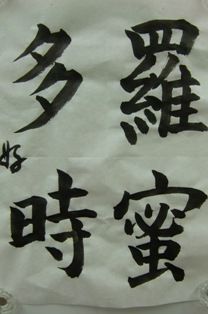 羅蜜
多時
好